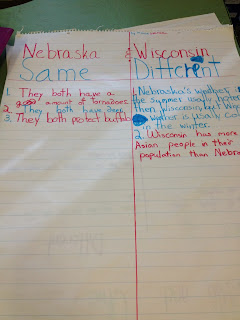 Nebraska & Wisconsin
Same Different
1. They both have a
amount of tornadoes.
2. They both have deer.
3. They both protect buffalo
1. Nebraska's weather in
the summer is hotter
then wisconsin, but
wether is Cold
in the winter.
2. Wisconsin has more
Asian people in their
population than Nebra